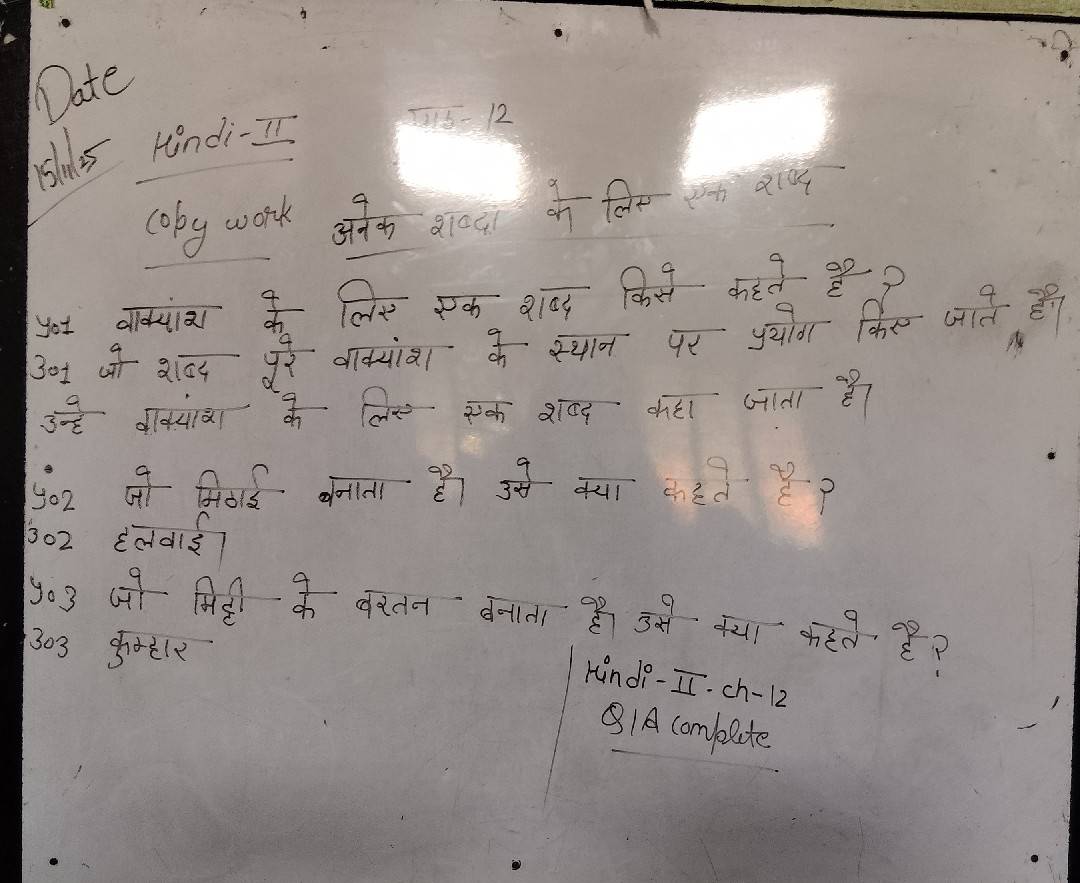 Date
15/11/25
Hindi-II पाठ-12
Copy work अनेक शब्दों के लिए एक शब्द
प्र०1 वाक्यांश के लिए एक शब्द किसे कहते है?
उ०1 जो शब्द पूरे वाक्यांश के स्थान पर प्रयोग किए जाते है।
उन्हे वाक्यांश के लिए एक शब्द कहा जाता है।
प्र०2 जो मिठाई बनाता है। उसे क्या कहते है?
उ०2 हलवाई।
प्र०3 जो मिट्टी के बरतन बनाता है। उसे क्या कहते है?
उ०3 कुम्हार
Hindi-II. ch-12
Q/A complete